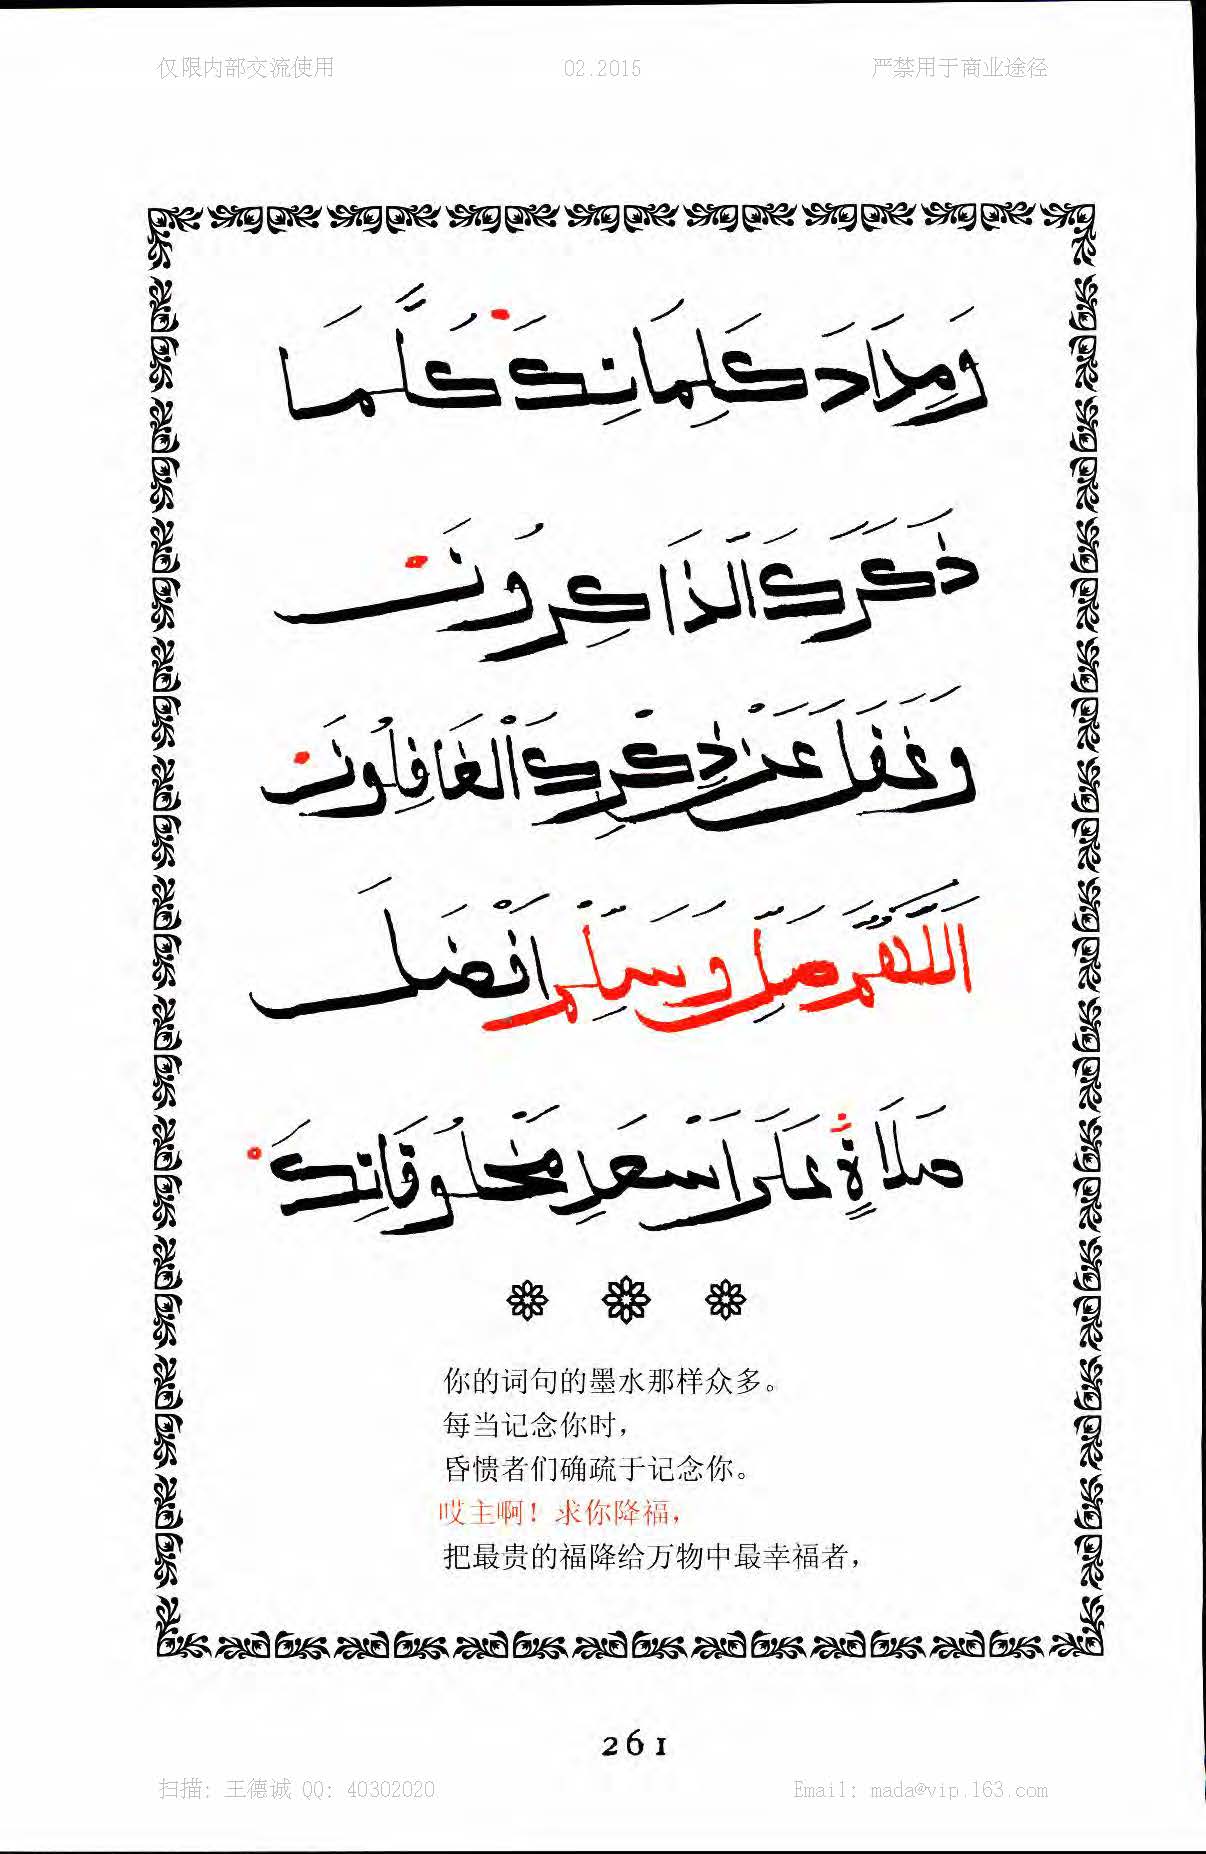 仅限内部交流使用 02.2015 严禁用于商业途径
وَمِدَادَ كَلِمَاتِكَ كُلَّمَا
ذَكَرَكَ الذَّاكِرُونَ
وَغَفَلَ عَنْ ذِكْرِكَ الْغَافِلُونَ
اَللَّهُمَّ صَلِّ وَسَلِّمْ اَفْضَلَ
صَلَاةٍ عَلَى اَسْعَدِ مَخْلُوقَاتِكَ
你的词句的墨水那样众多。
每当记念你时，
昏愦者们确疏于记念你。
哎主啊！求你降福，
把最贵的福降给万物中最幸福者，
261
扫描：王德诚 QQ：40302020 Email：mada@vip.163.com